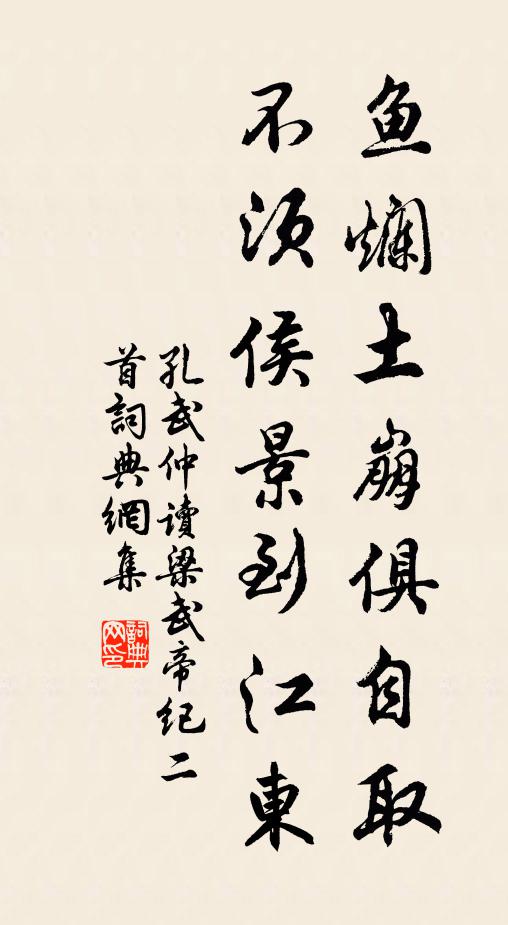 鱼爛土崩俱自取
不须侯景到江東
孔武仲读梁武帝纪二
首詞典網集
詞典
网印